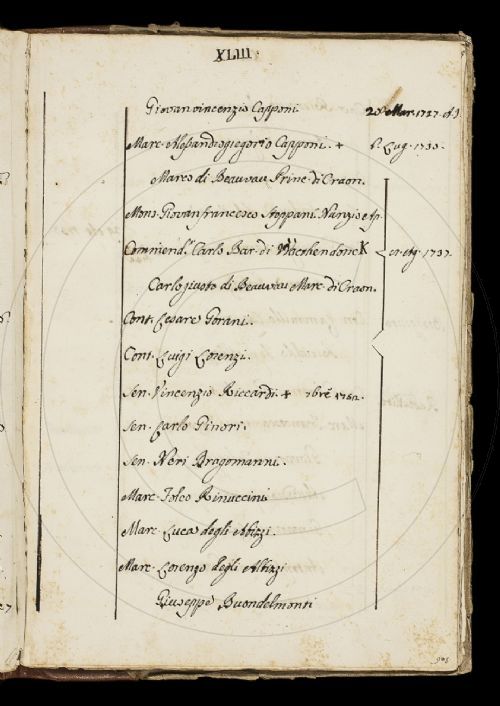 XLIII.
Giovanvincenzio Capponi. 28 Mar. 1727.
Marc. Alessandrogregorio Capponi. + Lug. 1733.
Marco di Beauvau Princ. di Craon.
Mons. Giovanfrancesco Stoppani Nunzio Ap.
Commend.r Carlo Bar. di Wacthendonck 1737.
Carlo di Beauvau Marc. di Craon.
Cont. Cesare Gorani.
Cont. Luigi Lorenzi.
Sen. Vincenzio Riccardi. + 1752.
Sen. Carlo Ginori.
Sen. Neri Dragomanni.
Marc. Folco Rinuccini
Marc. Luca degli Albizzi.
Marc. Lorenzo degli Albizzi
Giuseppe Buondelmonti